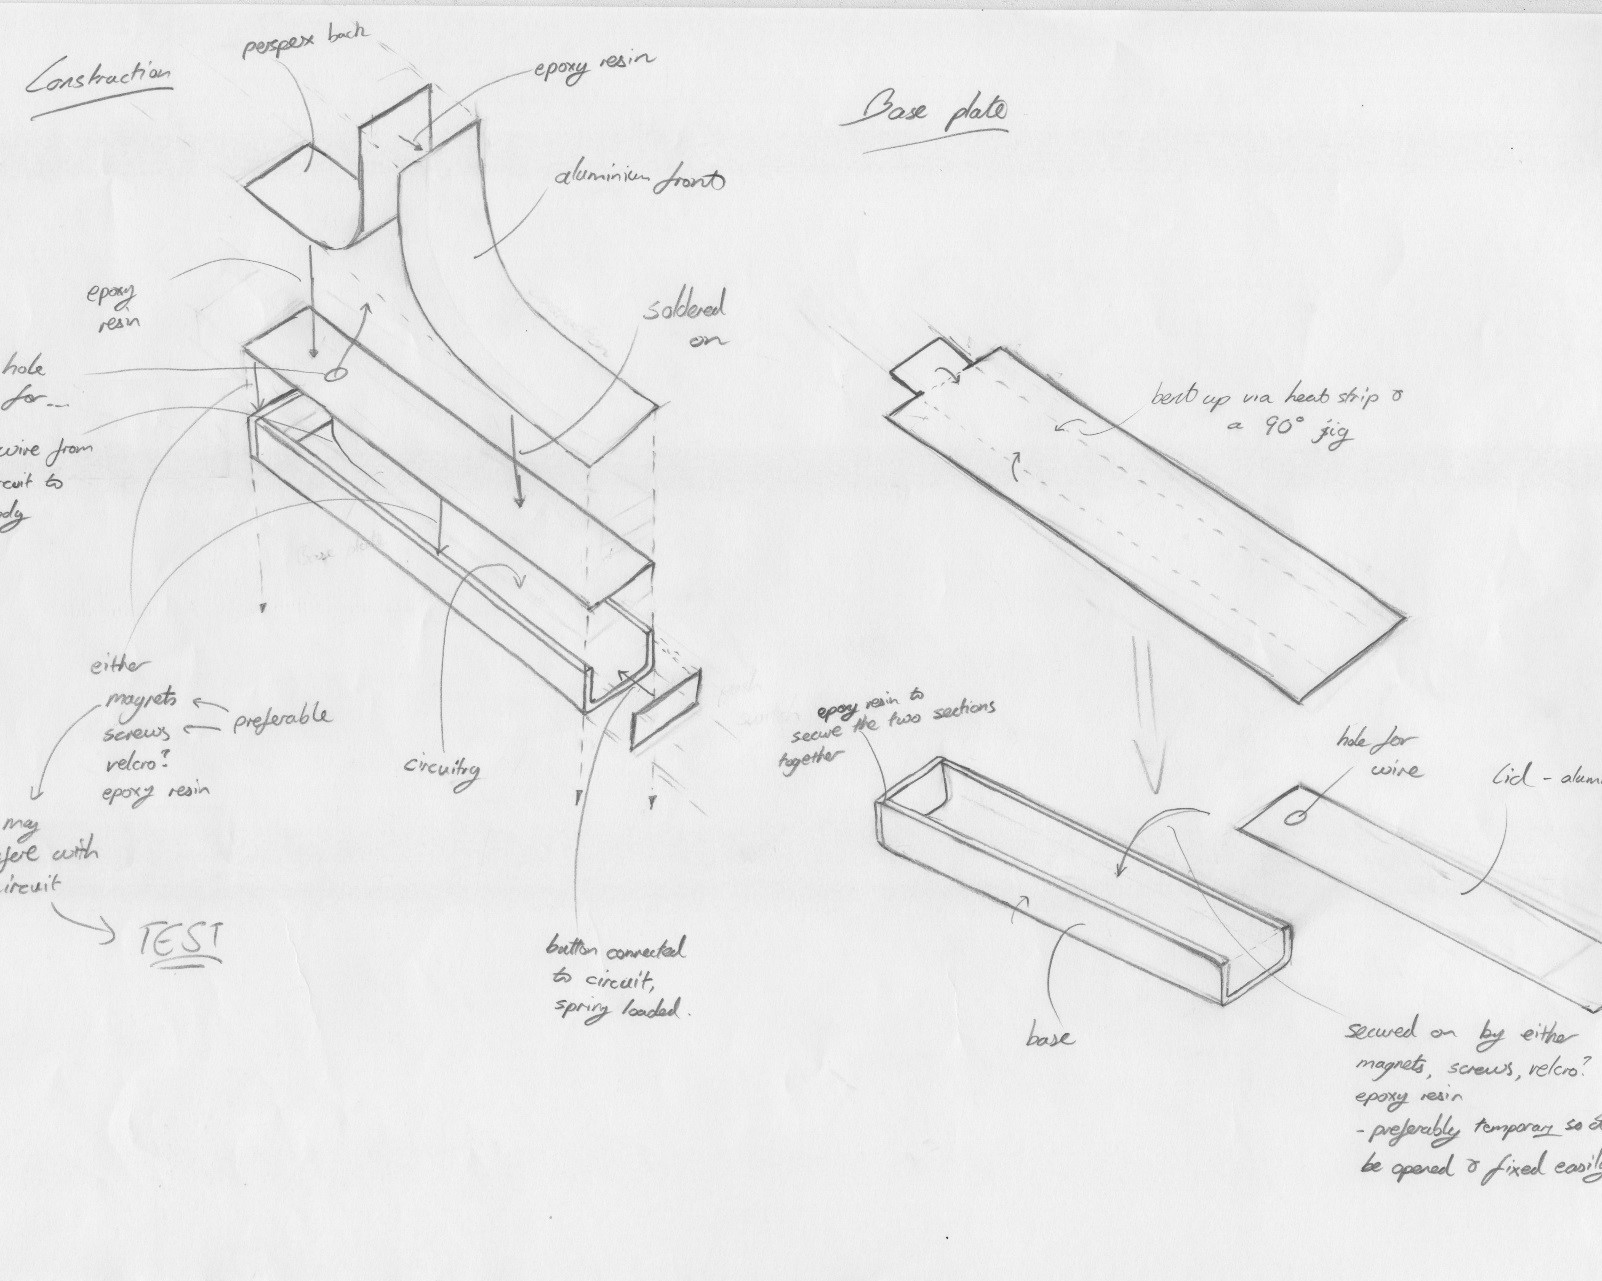 Construction
perspex back
epoxy resin
aluminium front
epoxy
resin
soldered
on
hole
for...
wire from
cuit to
ody
either
magnets
screws
velcro?
epoxy resin
preferable
circuitry
may
fere with
ircuit
TEST
button connected
to circuit,
spring loaded.
Base plate
bent up via heat strip &
a 90° jig
epoxy resin to
secure the two sections
together
hole for
wire
Lid - alum
base
secured on by either
magnets, screws, velcro?
epoxy resin
- preferably temporary so
be opened & fixed easily